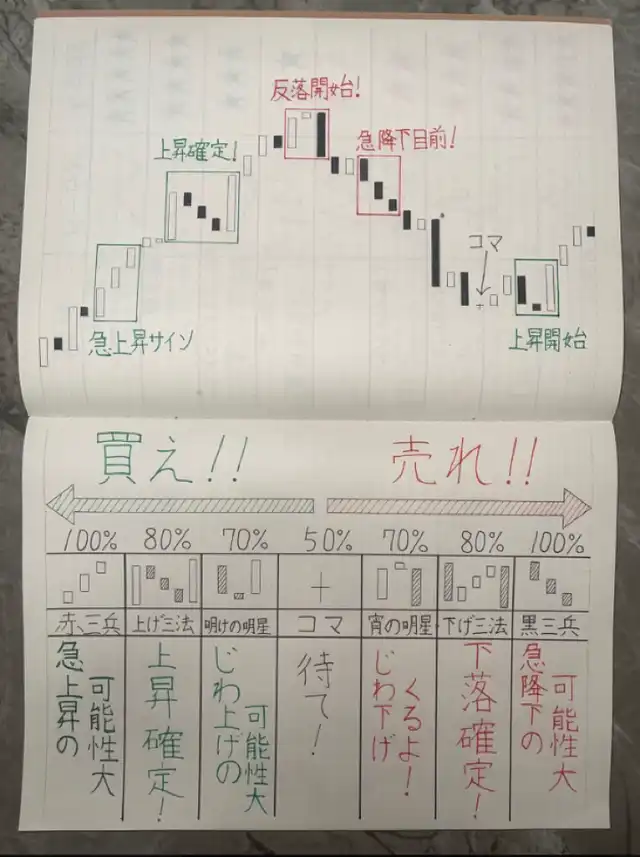 反落開始!
上昇確定!
急降下目前!
コマ
急上昇サイン
上昇開始
買え!!
売れ!!
100% 80% 70% 50% 70% 80% 100%
赤三兵 上げ三法 明けの明星 コマ 宵の明星 下げ三法 黒三兵
急上昇の
可能性大
上昇確定!
じわ上げの
可能性大
待て!
じわ下げ
くるよ!
下落確定!
急降下の
可能性大